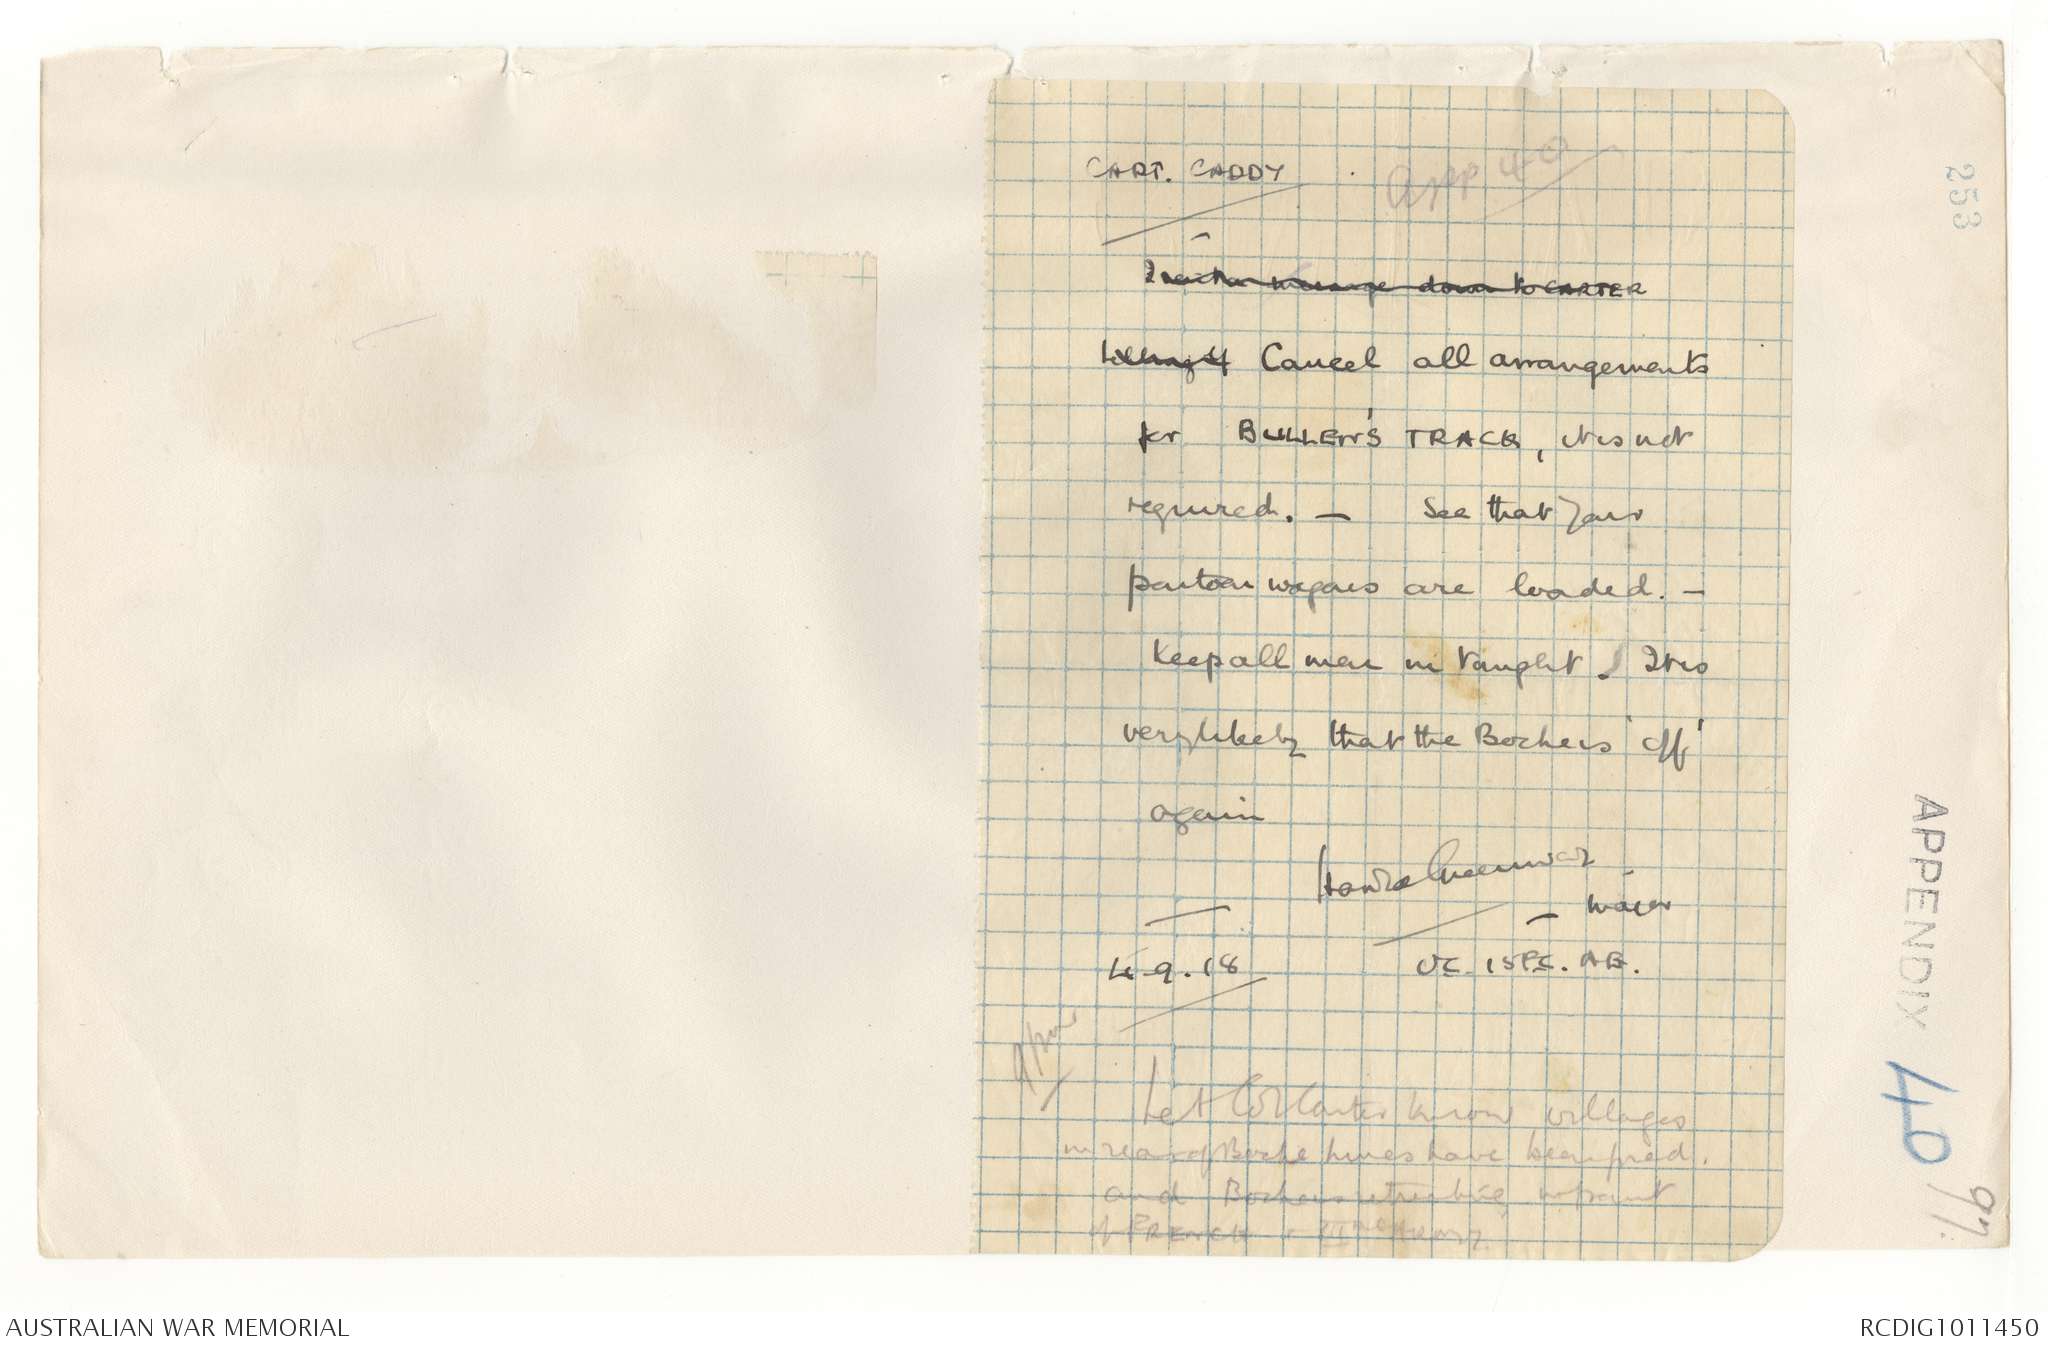 CAPT. CADDY
App 40
message down to CARTER
Cancel all arrangements
for BULLEN'S TRACK, it is not
required. — See that your
pontoon wagons are loaded. —
Keep all men in tonight. It is
very likely that the Boche is 'off'
again
Major
4.9.18
OC. 15 F.C. A.E.
9 pm
Let Col Carter know villages
in rear of Boche lines have been fired.
and Boche is retreating in front
of FRENCH & IIIrd ARMY.
253
APPENDIX 40
97.
AUSTRALIAN WAR MEMORIAL
RCDIG1011450